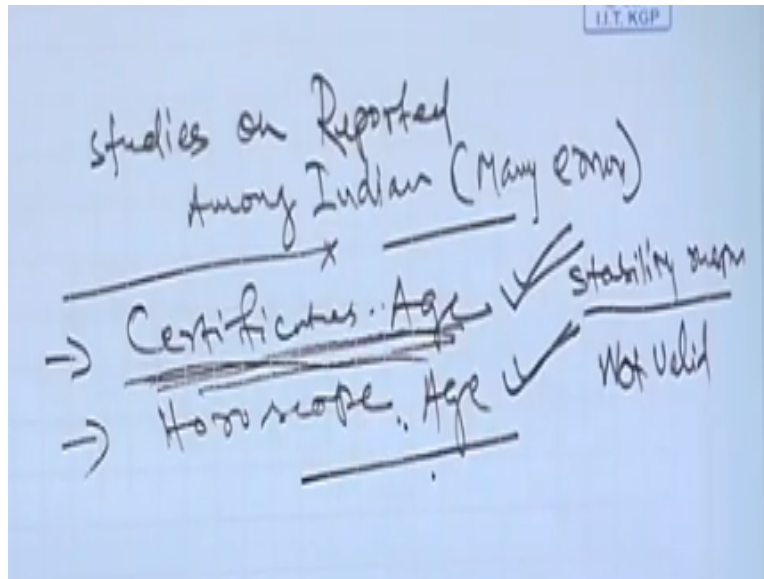 I.I.T. KGP
studies on Reported
Among Indian (Many error)
→ Certificates.. Age ✓ stability
→ Horoscope.. Age ✓ Not Valid